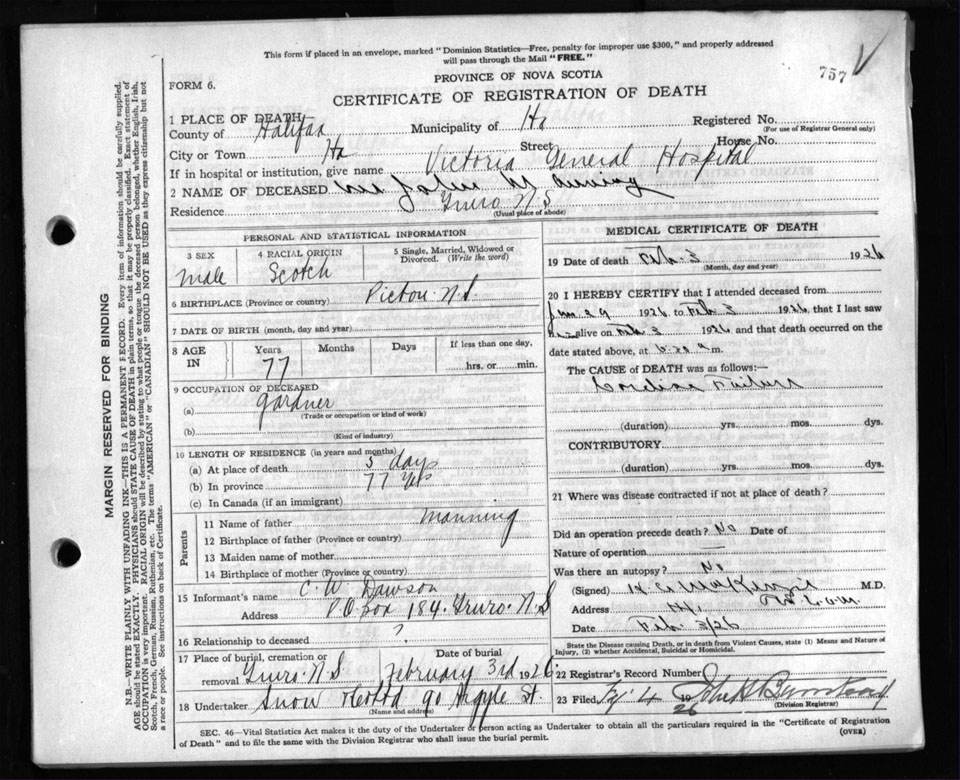 This form if placed in an envelope, marked "Dominion Statistics—Free, penalty for improper use $300," and properly addressed
will pass through the Mail "FREE."
757
PROVINCE OF NOVA SCOTIA
FORM 6.
CERTIFICATE OF REGISTRATION OF DEATH
1 PLACE OF DEATH
County of Halifax Municipality of Hx Registered No.
(For use of Registrar General only)
City or Town Hx Street House No.
If in hospital or institution, give name Victoria General Hospital
2 NAME OF DECEASED John
Residence Truro N.S.
(Usual place of abode)
PERSONAL AND STATISTICAL INFORMATION
3 SEX 4 RACIAL ORIGIN 5 Single, Married, Widowed or
Divorced. (Write the word)
male Scotch
6 BIRTHPLACE (Province or country) Pictou N.S.
7 DATE OF BIRTH (month, day and year)
8 AGE IN Years Months Days If less than one day,
77 hrs. or min.
9 OCCUPATION OF DECEASED
(a) gardner
(Trade or occupation or kind of work)
(b)
(Kind of industry)
10 LENGTH OF RESIDENCE (in years and months)
(a) At place of death 5 days
(b) In province 77 yrs
(c) In Canada (if an immigrant)
Parents
11 Name of father Manning
12 Birthplace of father (Province or country)
13 Maiden name of mother
14 Birthplace of mother (Province or country)
15 Informant's name C. W. Dawson
Address P.O Box 184, Truro. N.S
16 Relationship to deceased ?
17 Place of burial, cremation or Date of burial
removal Truro. N.S February 3rd 1926
18 Undertaker Snow & Co Ltd 90 Argyle St.
(Name and address)
MEDICAL CERTIFICATE OF DEATH
19 Date of death Feb. 3 1926
(Month, day and year)
20 I HEREBY CERTIFY that I attended deceased from
Jan 29 1926 to Feb 3 1926, that I last saw
him alive on Feb 3 1926, and that death occurred on the
date stated above, at m.
The CAUSE of DEATH was as follows:—
Cardiac Failure
(duration) yrs. mos. dys.
CONTRIBUTORY
(duration) yrs. mos. dys.
21 Where was disease contracted if not at place of death?
Did an operation precede death? No Date of
Nature of operation
Was there an autopsy? No
(Signed) MacKenzie M.D.
Address Hx.
Date Feb. 3/26
State the Disease causing Death, or in death from Violent Causes, state (1) Means and Nature of
Injury, (2) whether Accidental, Suicidal or Homicidal.
22 Registrar's Record Number
23 Filed 4 1926 John
(Division Registrar)
SEC. 46—Vital Statistics Act makes it the duty of the Undertaker or person acting as Undertaker to obtain all the particulars required in the "Certificate of Registration
of Death" and to file the same with the Division Registrar who shall issue the burial permit. (OVER)
MARGIN RESERVED FOR BINDING
N.B.—WRITE PLAINLY WITH UNFADING INK—THIS IS A PERMANENT RECORD. Every item of information should be carefully supplied.
AGE should be stated EXACTLY. PHYSICIANS should STATE CAUSE OF DEATH in plain terms, so that it may be properly classified. Exact statement of
OCCUPATION is very important. RACIAL ORIGIN will be described by stating to what people or tongue the deceased person belonged, whether English, Irish,
Scotch, French, German, Russian, Ruthenian, etc. The terms "AMERICAN" or "CANADIAN" SHOULD NOT BE USED as they express citizenship but not
a race or people. See instructions on back of Certificate.